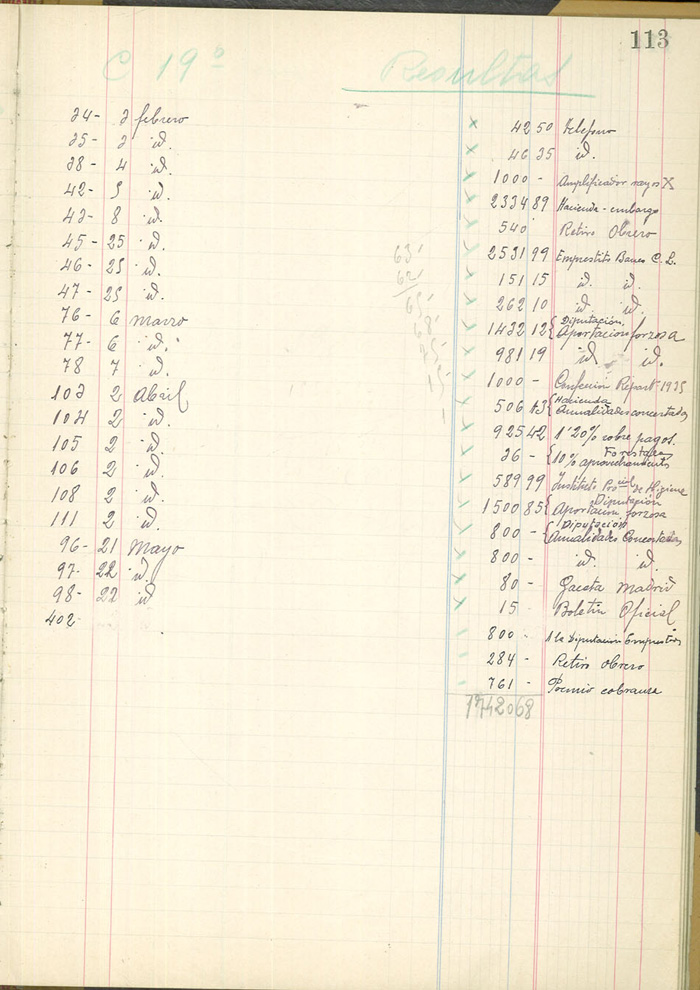 113
C 19º Resultas
34- 3 febrero × 42 50 telefono
35- 3 id. × 46 35 id.
38- 4 id. × 1000 - Amplificador rayos X
42- 5 id. × 2334 89 Hacienda-embargo
43- 8 id. 540 Retiro Obrero
45- 25 id. × 2531 99 Emprestito Banco C. L.
46- 25 id. × 151 15 id. id.
47- 25 id. × 262 10 id. id.
76- 6 Marzo × 1432 12 { Diputación
Aportacion forzosa
77- 6 id. × 981 19 id. id.
78 7 id. 1000 - Confección Repart. 1935
103 2 Abril × 506 43 { Hacienda
Anualidades concertadas
104 2 id. × 925 42 1'20% sobre pagos.
105 2 id. 36 - { Forestales
10% aprovechamiento
106 2 id. 589 99 Instituto Pro cial de Higiene
108 2 id. 1500 85 { Diputación
Aportacion forzosa
111 2 id. 800 - { Diputación
Anualidades Concertadas
96- 21 Mayo × 800 - id. id.
97- 22 id × 80 - Gaceta Madrid
98- 22 id × 15 - Boletin Oficial
402- 800 - A la Diputación Emprestito
284 - Retiro obrero
761 - Premio cobranza
17420 68
63'
62'
65'
68'
75'